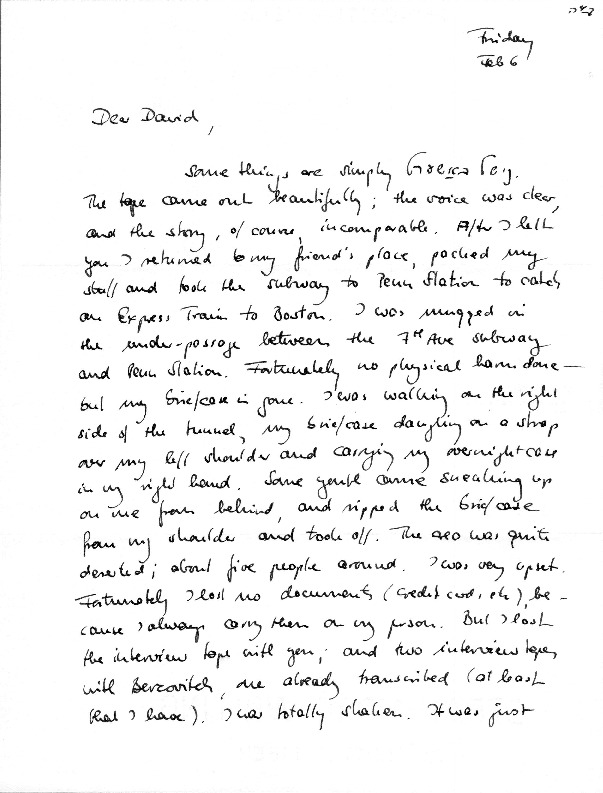 Friday
Feb 6
Dear David,
Some things are simply
The tape came out beautifully; the voice was clear,
and the story, of course, incomparable. After I left
you I returned to my friend's place, packed my
stuff and took the subway to Penn Station to catch
an Express Train to Boston. I was mugged in
the under-passage between the 7th Ave subway
and Penn Station. Fortunately no physical harm done—
but my briefcase is gone. I was walking on the right
side of the tunnel, my briefcase dangling on a strap
over my left shoulder and carrying my overnight case
in my right hand. Some youth came sneaking up
on me from behind, and ripped the briefcase
from my shoulder and took off. The area was quite
deserted; about five people around. I was very upset.
Fortunately I lost no documents (credit cards, etc), be-
cause I always carry them on my person. But I lost
the interview tape with you; and two interview tapes
with Bercovitch, one already transcribed (at least
that I have). I was totally shaken. It was just